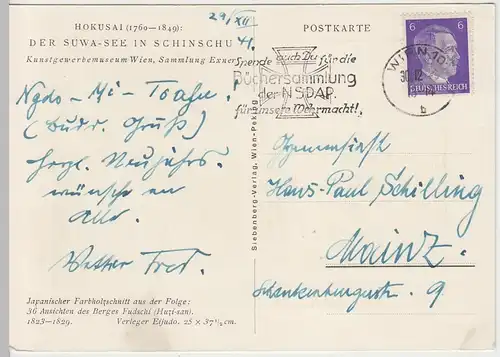 HOKUSAI (1760–1849):
DER SUWA-SEE IN SCHINSCHU
Kunstgewerbemuseum Wien, Sammlung Exner
29/XII
41.
(Buddr. Gruß)
Hrzl. Neujahrs-
wünsche an
Alle.
Vetter Fred.
Japanischer Farbholzschnitt aus der Folge:
36 Ansichten des Berges Fudschi (Hugi-san).
1823–1829. Verleger Eijudo. 25 × 37½ cm.
Siebenberg-Verlag, Wien-Peking
POSTKARTE
Spende auch Du für die
Büchersammlung
der NSDAP.
für unsere Wehrmacht!
WIEN 10
30.12
b
6 6
DEUTSCHES REICH
Hans-Paul Schilling
Mainz.
9.